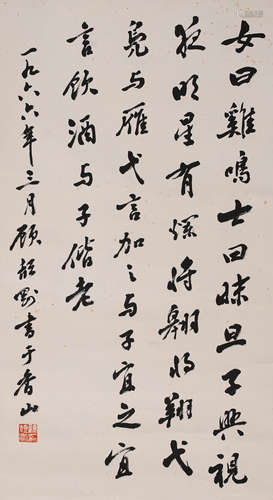 女曰雞鳴士曰昧旦子興視
夜明星有爛將翱將翔弋
鳧與雁弋言加之與子宜之宜
言飲酒與子偕老
一九六六年三月顧頡剛書于香山